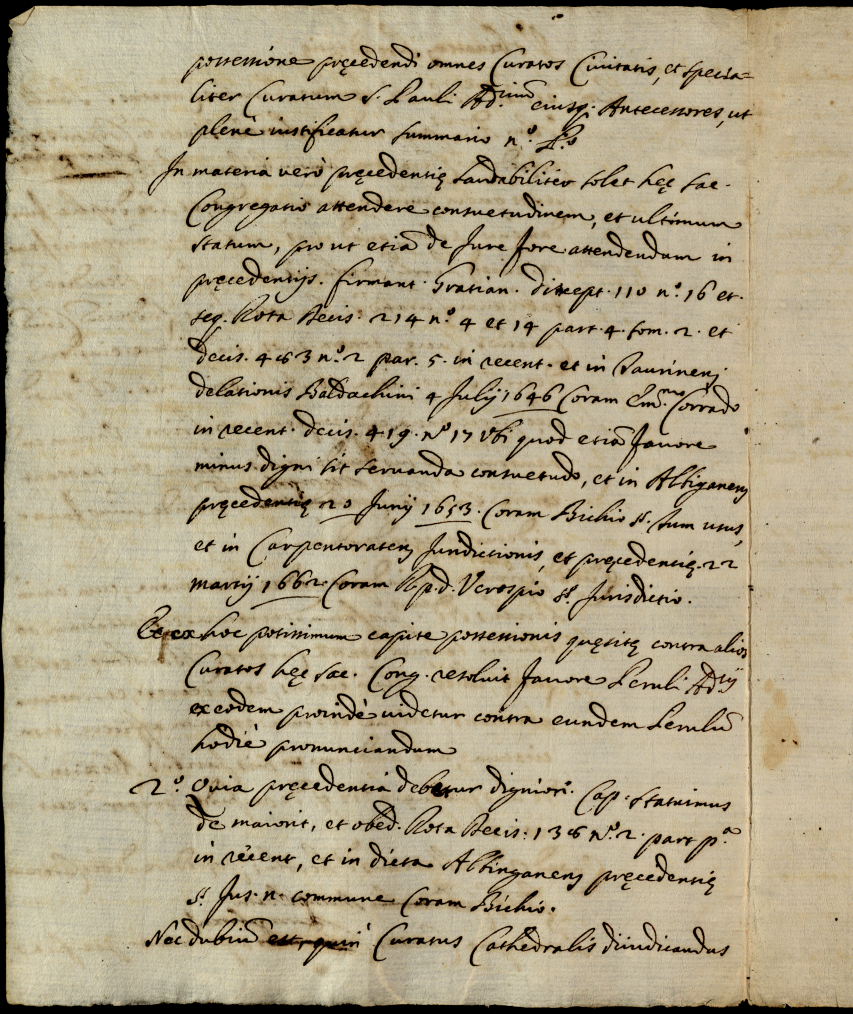 possessione pręcedendi omnes Curatos Ciuitatis, et specia=
liter Curatum S. Pauli Ad.rium eiusq. Antecessores, ut
plenè iustificatur summario n.o
In materia verò pręcedentię laudabiliter solet hęc Sac.
Congregatio attendere consuetudinem, et ultimum
statum, pro ut etiã de Jure fore attendendum in
pręcedentijs. firmant. Gratian. discept. 110 n.o 16 et
seq. Rota Decis. 214 n.o 4 et 14 part. 4. tom. 2. et
decis. 463 n.o 2 par. 5. in recent. et in Taurinens.
delationis Baldachini 4 Julij 1646 Coram Em.mo Corrado
in recent. decis. 419. n.o 17 Vbi quod etiã fauore
minus digni sit seruanda consuetudo, et in Albiganens
pręcedentię 20 Junij 1653. Coram Bichio §. tum usus,
et in Carpentoratens Jurisdictionis, et pręcedentię 22
martij 1662. Coram R.p.d. Verospio §. Jurisdictio.
Et ex hoc potissimum capite possessionis quęsitę contra alios
Curatos hęc Sac. Cong. resoluit fauore Leruli Ad.rij
ex eodem proindè uidetur contra eundem Lerulũ
hodiè pronunciandum
2.o Quia pręcedentia debetur digniori. Cap. statuimus
de maiorit, et obed. Rota Decis: 136 N.o 2. part p.a
in recent, et in dicta Albinganens pręcedentię
§. Jus. n. commune Coram Bichio.
Nec dubiũ est, quin Curatus Cathedralis diiudicandus